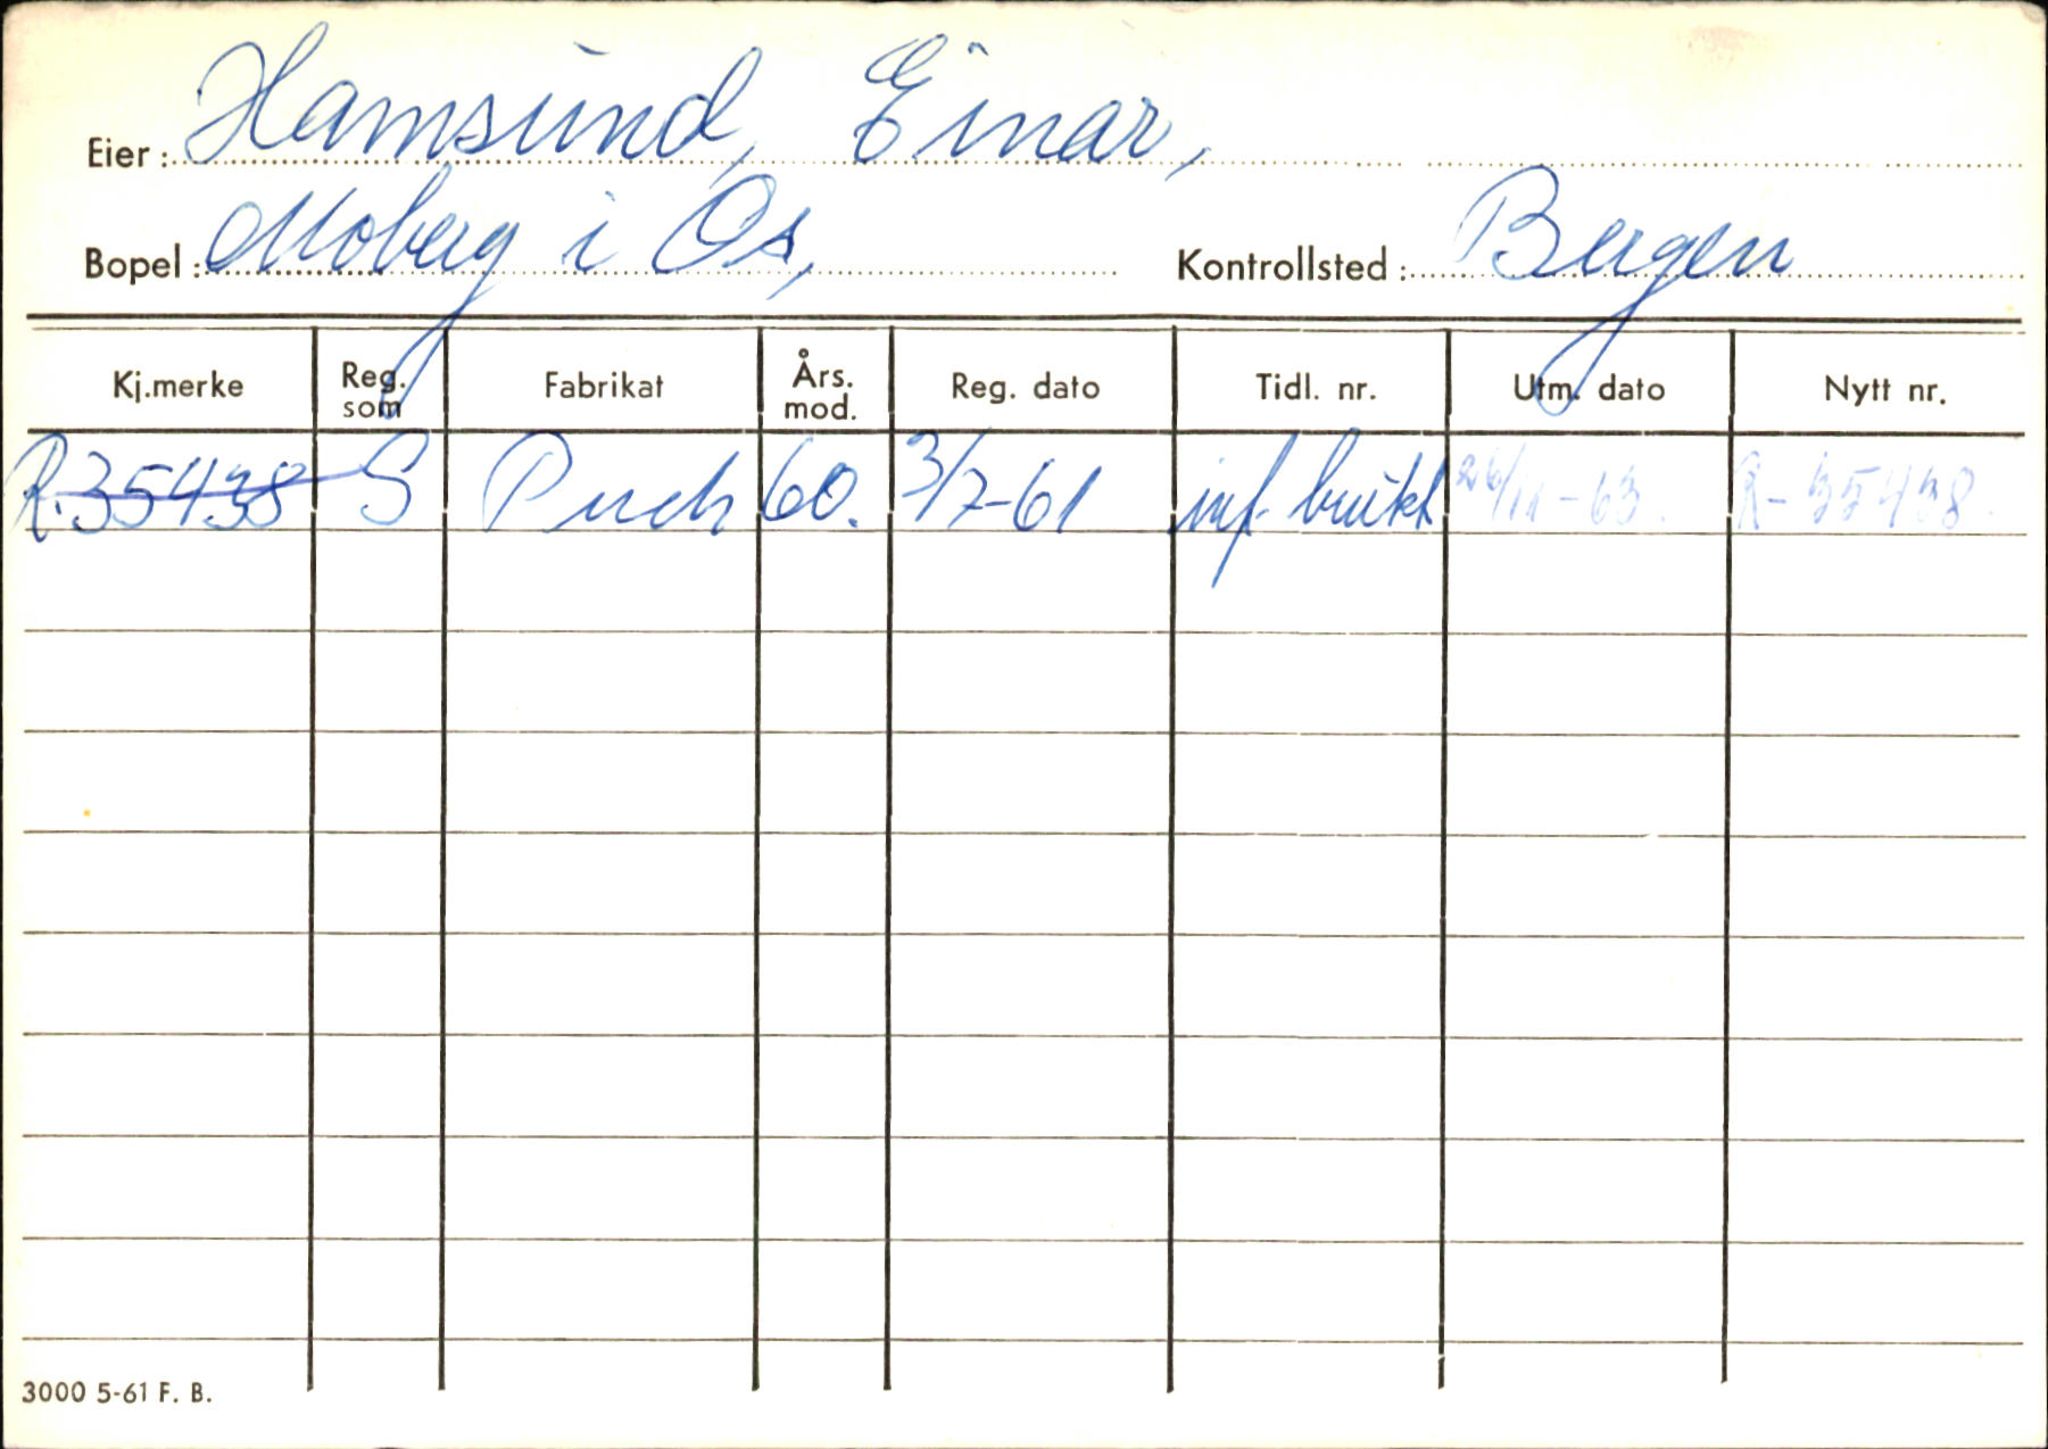 Eier: Hamsund, Einar,
Bopel: Moberg i Os, Kontrollsted: Bergen
Kj.merke Reg. som Fabrikat Års. mod. Reg. dato Tidl. nr. Utm. dato Nytt nr.
R.35438 S Puch 60. 3/7-61 inf. brukt 26/11-63. R-35438.
3000 5-61 F. B.